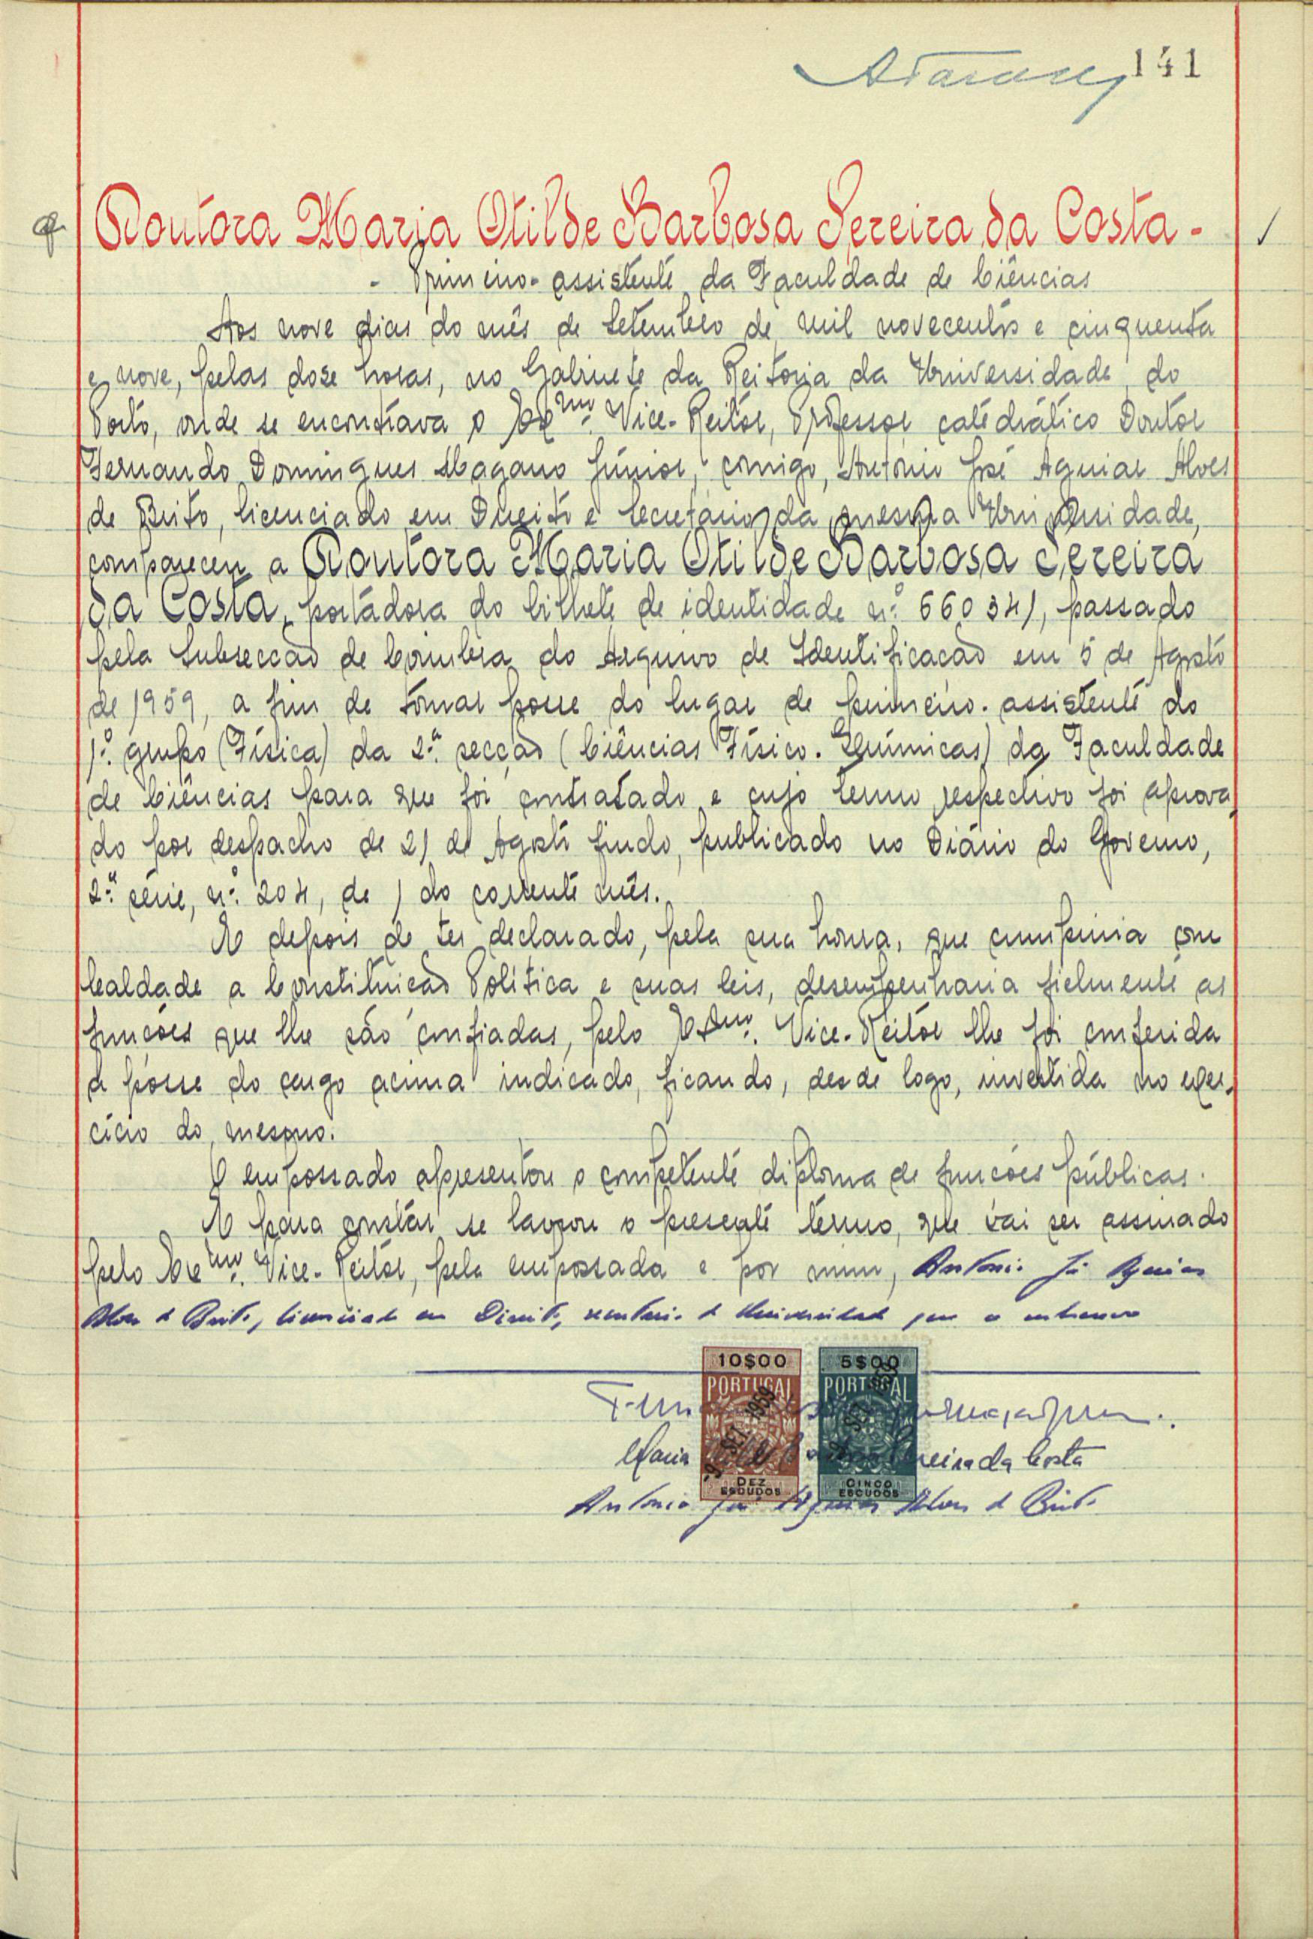 141
Doutora Maria Otilde Barbosa Pereira da Costa -
- Primeiro-assistente da Faculdade de Ciências
Aos nove dias do mês de Setembro de mil novecentos e cinquenta
e nove, pelas doze horas, no Gabinete da Reitoria da Universidade do
Porto, onde se encontrava o Exmo. Vice-Reitor, Professor catedrático Doutor
Fernando Domingues Magano Júnior, comigo, António José Aguiar Alves
de Brito, licenciado em Direito e Secretário da mesma Universidade,
compareceu a Doutora Maria Otilde Barbosa Pereira
da Costa, portadora do bilhete de identidade n.º 660341, passado
pela Subsecção de Coimbra do Arquivo de Identificação em 5 de Agosto
de 1959, a fim de tomar posse do lugar de primeiro-assistente do
1.º grupo (Física) da 2.ª secção (Ciências Físico-Químicas) da Faculdade
de Ciências para que foi contratado e cujo termo respectivo foi aprova
do por despacho de 21 de Agosto findo, publicado no Diário do Governo,
2.ª série, n.º 204, de 1 do corrente mês.
E depois de ter declarado, pela sua honra, que cumpriria com
lealdade a Constituição Política e suas leis, desempenharia fielmente as
funções que lhe são confiadas, pelo Exmo. Vice-Reitor lhe foi conferida
a posse do cargo acima indicado, ficando, desde logo, investida no exer-
cício do mesmo.
O empossado apresentou o competente diploma de funções públicas.
E para constar se lavrou o presente têrmo, que vai ser assinado
pelo Exmo. Vice-Reitor, pela empossada e por mim, António José Aguiar
Alves de Brito, licenciado em Direito, secretário da Universidade que o subscrevo
10$00 5$00
PORTUGAL PORTUGAL
-9. SET. 1959 -9. SET. 1959
Maria Otilde Barbosa Pereira da Costa
DEZ ESCUDOS CINCO ESCUDOS
António José Aguiar Alves de Brito